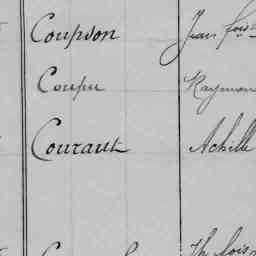 Coupson Jean fois
Coupu Raymon
Couraut Achille